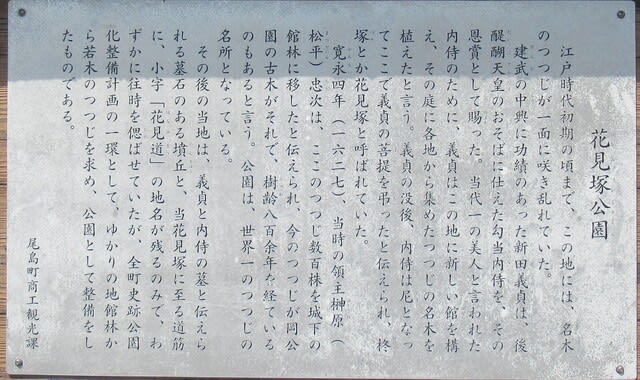 花見塚公園
江戸時代初期の頃まで、この地には、名木
のつつじが一面に咲き乱れていた。
建武の中興に功績のあった新田義貞は、後
醍醐天皇のおそばに仕えた勾当内侍を、その
恩賞として賜った。当代一の美人と言われた
内侍のために、義貞はこの地に新しい館を構
え、その庭に各地から集めたつつじの名木を
植えたと言う。義貞の没後、内侍は尼となっ
てここで義貞の菩提を弔ったと伝えられ、柊
塚とか花見塚と呼ばれていた。
寛永四年(一六二七)、当時の領主榊原(
松平)忠次は、ここのつつじ数百株を城下の
館林に移したと伝えられ、今のつつじが岡公
園の古木がそれで、樹齢八百余年を経ている
のもあると言う。公園は、世界一のつつじの
名所となっている。
その後の当地は、義貞と内侍の墓と伝えら
れる墓石のある墳丘と、当花見塚に至る道筋
に、小字「花見道」の地名が残るのみで、わ
ずかに往時を偲ばせていたが、全町史跡公園
化整備計画の一環として、ゆかりの地館林か
ら若木のつつじを求め、公園として整備をし
たものである。
尾島町商工観光課